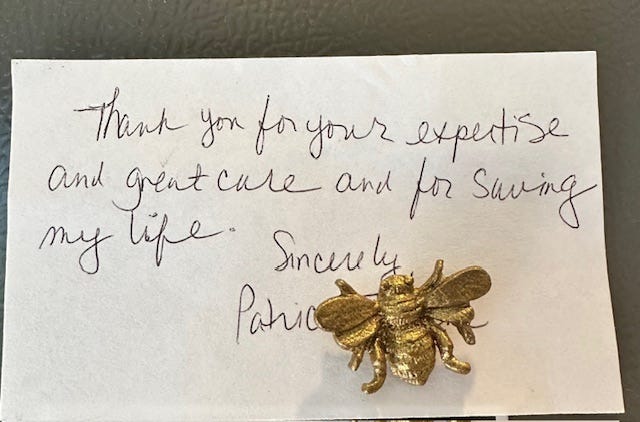 Thank you for your expertise
and great care and for saving
my life.
Sincerely,